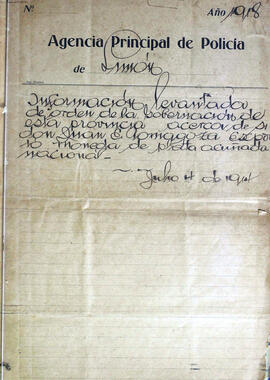 Nº Año 1918
Agencia Principal de Policía
de Limón
Información levantada
de orden de la Gobernación de
esta provincia acerca de si
don Juan E. expor
tó moneda de plata acuñada
nacional.
Julio 4 de